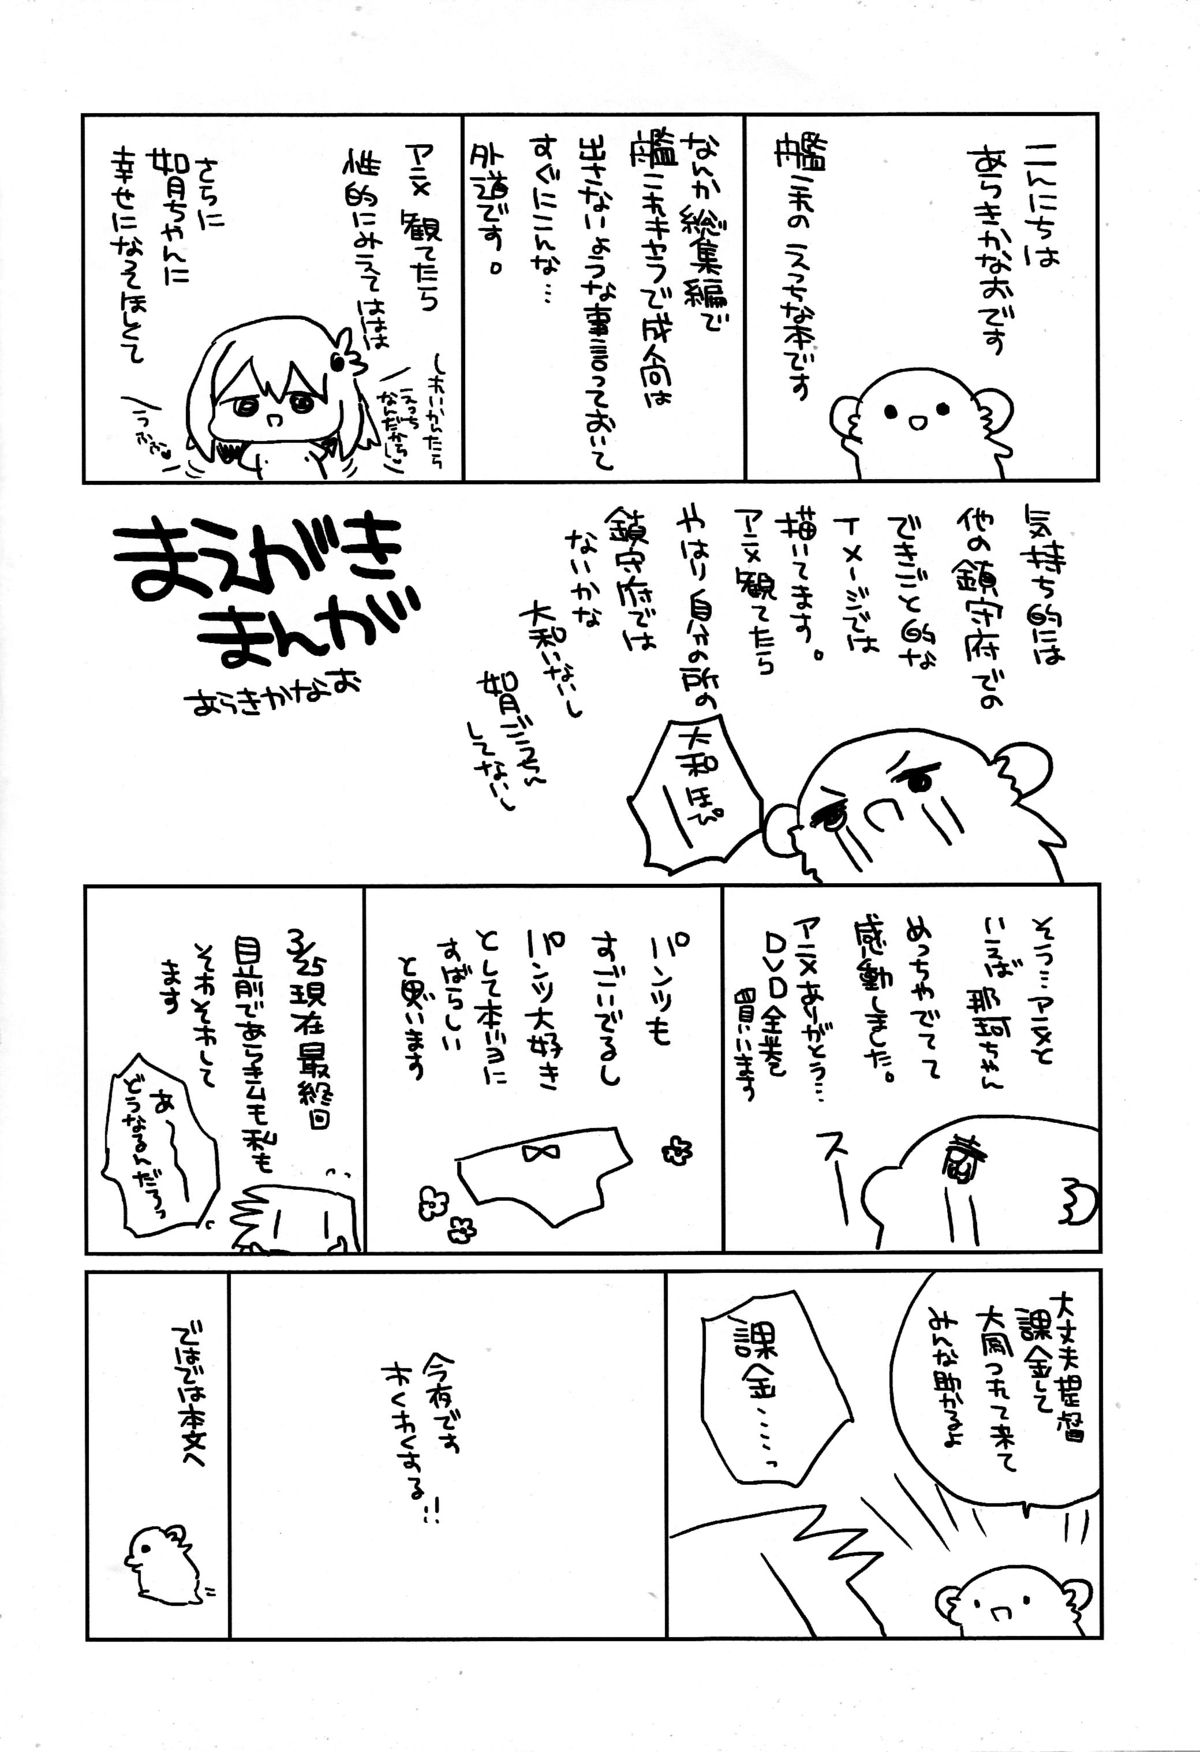 こんにちは
あらきかなおです
艦これの えっちな本です
なんか総集編で
艦これキャラで成人向は
出さないような事言っておいて
すぐにこんな…
外道です。
アニメ 観てたら
性的にみえてははは
さらに
如月ちゃんに
幸せになってほしくて
しおいかんたら
えっち
なんだから♡
うふふ♡
気持ち的には
他の鎮守府での
できごと的な
イメージでは
描いてます。
アニメ観てたら
やはり自分の所の
鎮守府では
ないかな
大和いないし
如月ごうちん
してないし
大和ほぴ
ーー
まえがき
まんが
あらきかなお
そう…アニメと
いえば 那珂ちゃん
めっちゃでてて
感動しました。
アニメありがとう…
DVD全巻を
買います
スー
パンツも
すごいでるし
パンツ大好き
として本当に
すばらしい
と思います
3/25現在 最終回
目前であらきムも私も
そわそわして
ます
あ〜〜
どうなるんだろっ
大丈夫提督
課金して
大同つれて来て
みんな助かるよ
課金……っ
今夜です
わくわくする!!
ではでは本文へ